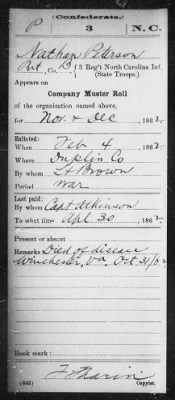 (Confederate.)
P 3 N.C.
Nathan Peterson
Pvt, Co. D, 3 Reg't North Carolina Inf.
(State Troops.)
Appears on
Company Muster Roll
of the organization named above,
for Nov. & Dec, 1862.
Enlisted:
When Feb 4, 1862.
Where Duplin Co
By whom Lt Brown
Period War
Last paid:
By whom Capt Atkinson
To what time Apl 30, 1862.
Present or absent
Remarks: Died of disease
Winchester, Va. Oct. 31/62
Book mark:
(642)
Copyist.